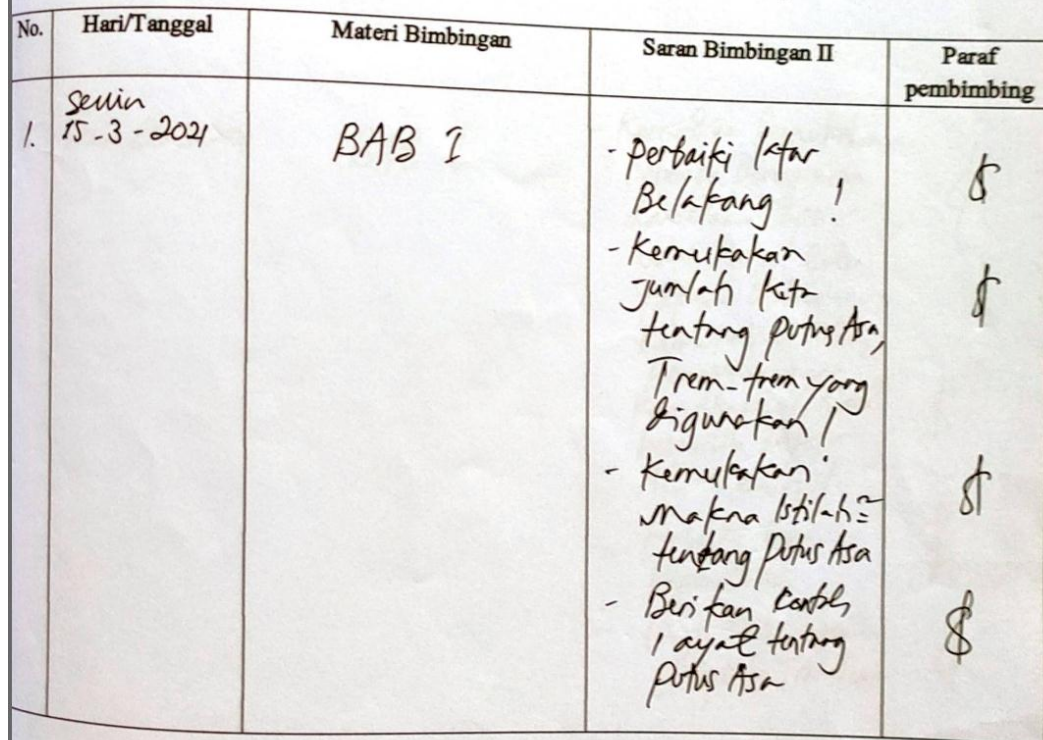 No. Hari/Tanggal Materi Bimbingan Saran Bimbingan II Paraf
pembimbing
Senin
1. 15-3-2021 BAB I - Perbaiki latar
Belakang !
- Kemukakan
Jumlah kata
tentang putus Asa,
Trem-trem yang
digunakan !
- Kemukakan
makna Istilah2
tentang Putus Asa
- Berikan Contoh
1 ayat tentang
Putus Asa